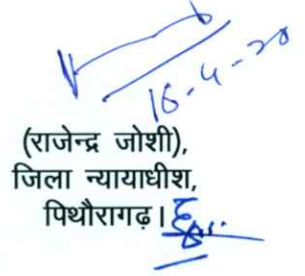 16-4-20
(राजेन्द्र जोशी),
जिला न्यायाधीश,
पिथौरागढ़।